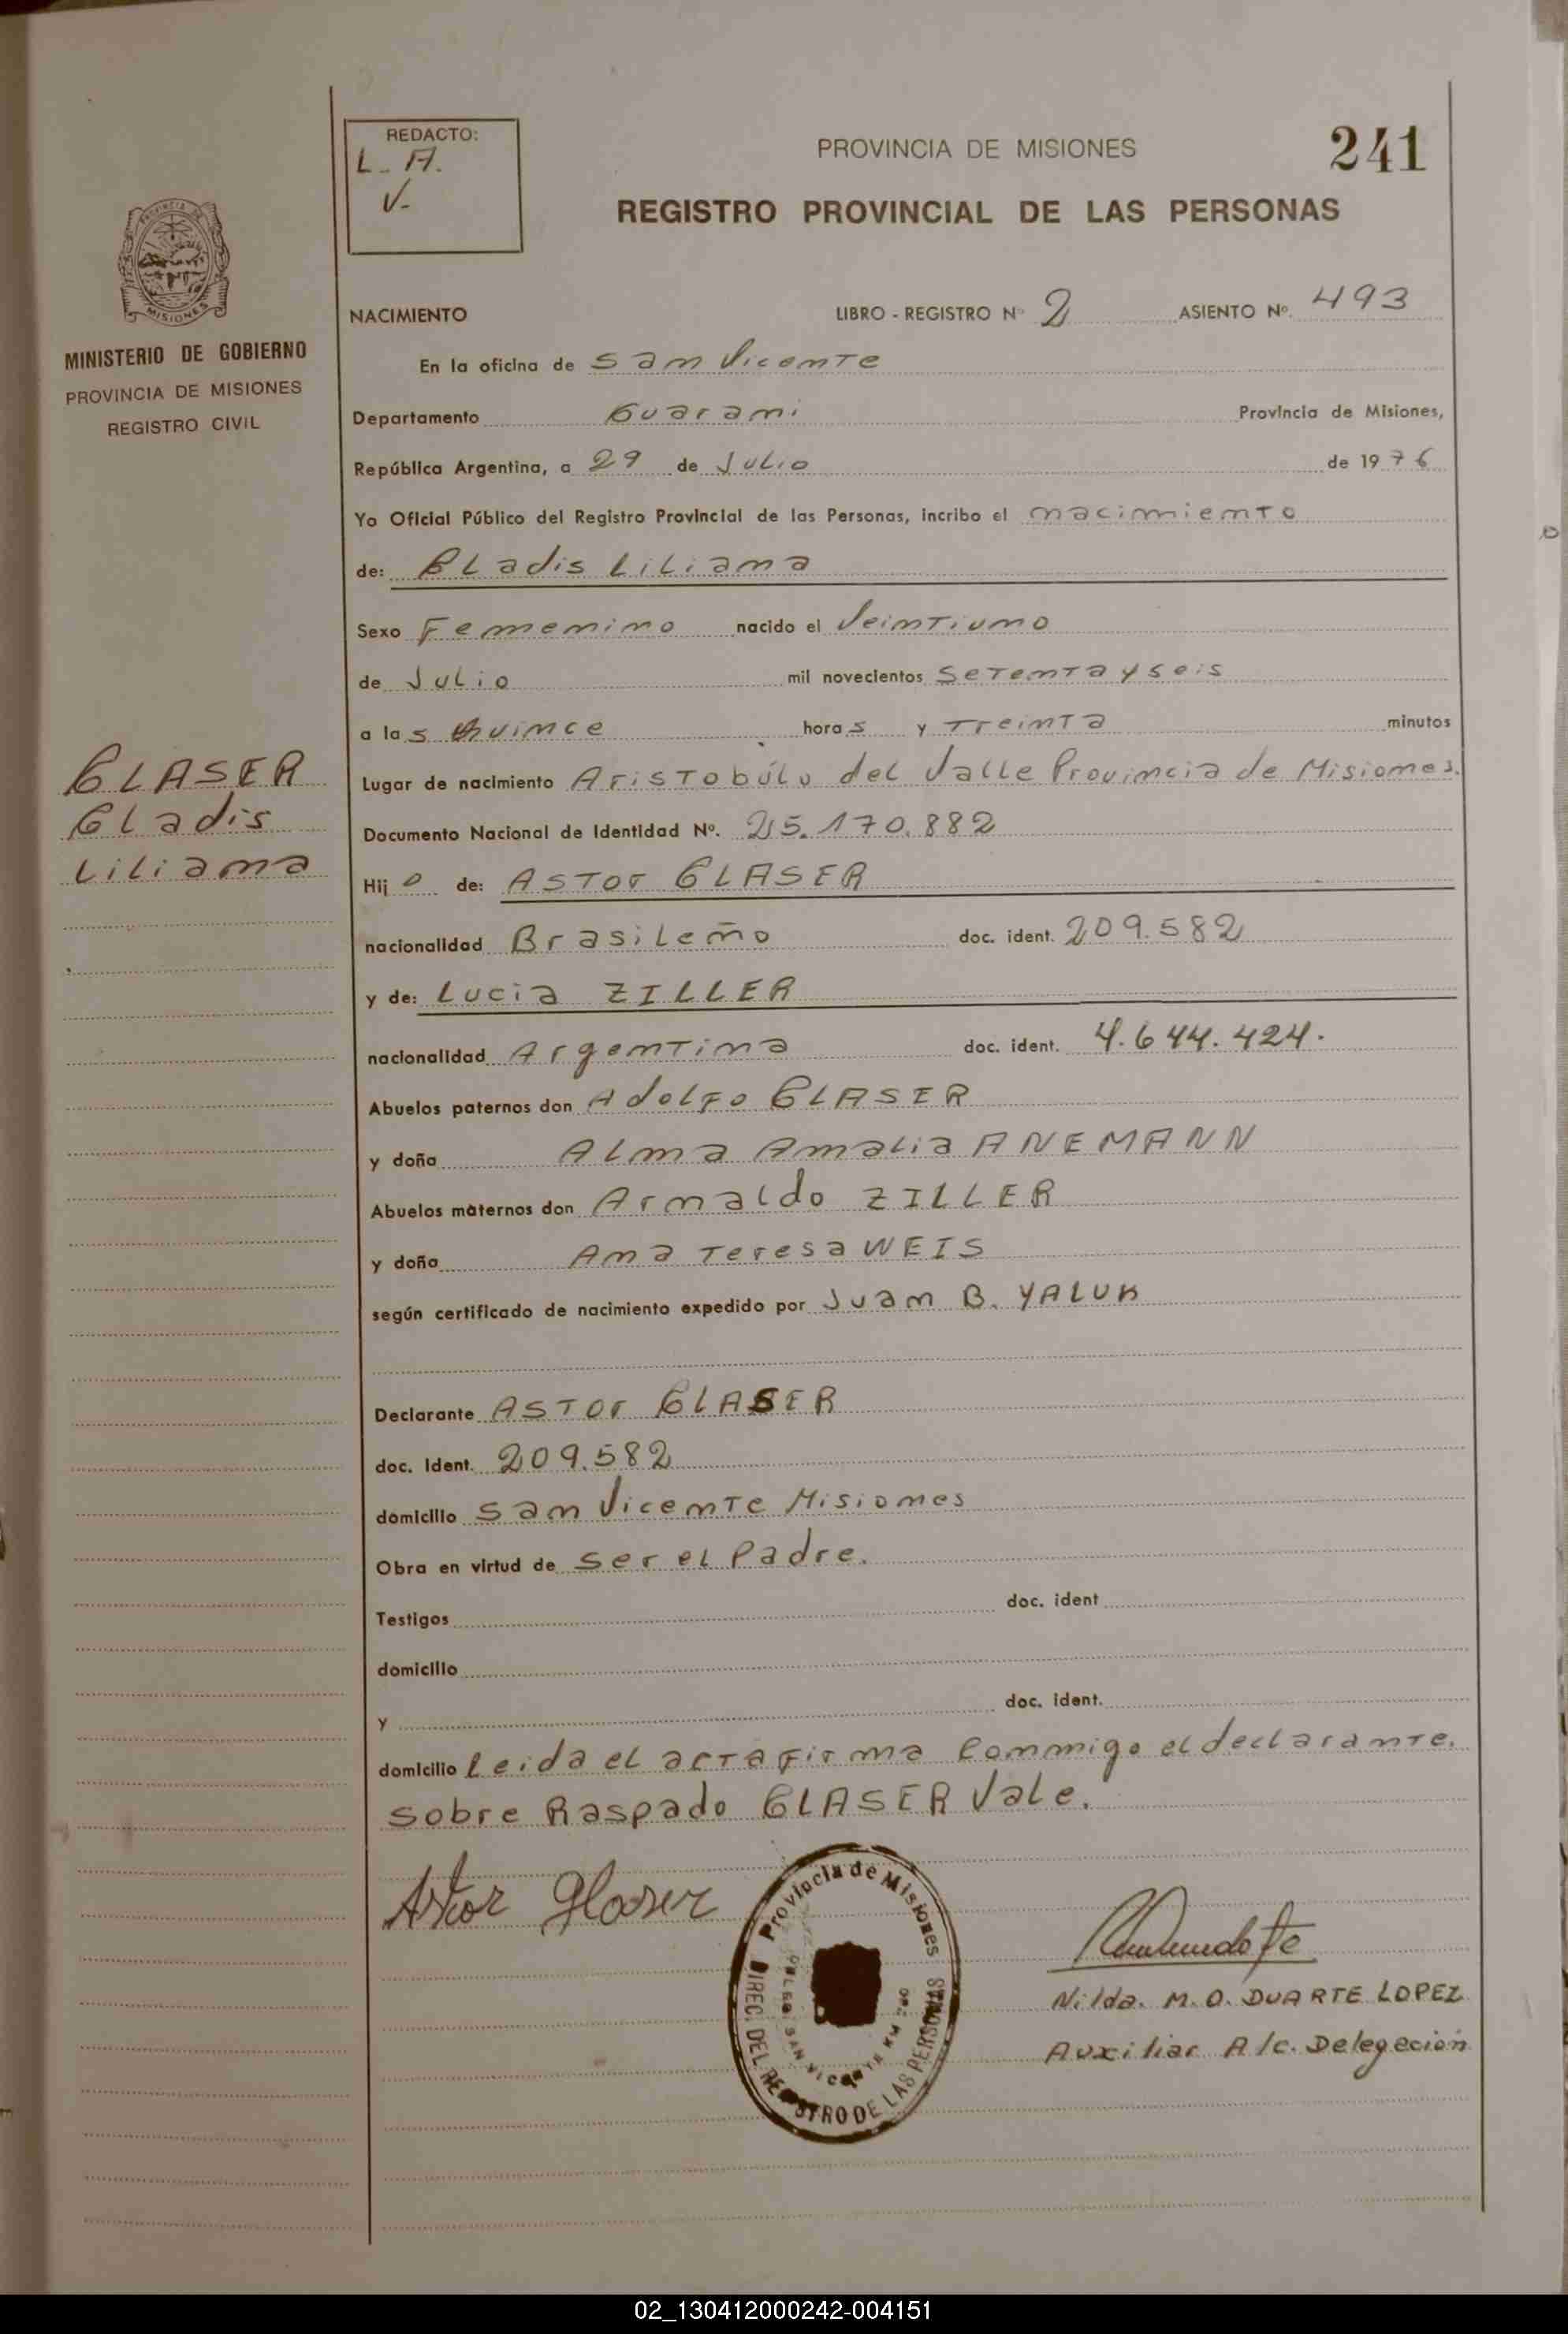 REDACTO:
L. A.
V.
PROVINCIA DE MISIONES
241
REGISTRO PROVINCIAL DE LAS PERSONAS
PROVINCIA DE
MISIONES
MINISTERIO DE GOBIERNO
PROVINCIA DE MISIONES
REGISTRO CIVIL
NACIMIENTO LIBRO - REGISTRO Nº 2 ASIENTO Nº. 493
En la oficina de San Vicente
Departamento Guarani Provincia de Misiones,
República Argentina, a 29 de Julio de 1976
Yo Oficial Público del Registro Provincial de las Personas, incribo el nacimiento
de: Gladis Liliana
Sexo Femenino nacido el Veintiuno
de Julio mil novecientos setenta y seis
a las quince horas y Treinta minutos
GLASER
Gladis
Liliana
Lugar de nacimiento Aristobúlo del Valle Provincia de Misiones.
Documento Nacional de Identidad Nº. 25.170.882
Hijo de: Astor GLASER
nacionalidad Brasileño doc. ident. 209.582
y de: Lucia ZILLER
nacionalidad Argentina doc. ident. 4.644.424.
Abuelos paternos don Adolfo GLASER
y doña Alma Amalia ANEMANN
Abuelos maternos don Arnaldo ZILLER
y doña Ana Teresa WEIS
según certificado de nacimiento expedido por Juan B. YALUK
Declarante Astor GLASER
doc. Ident. 209.582
domicilio San Vicente Misiones
Obra en virtud de ser el Padre.
Testigos doc. ident
domicilio
y doc. ident.
domicilio Leida el acta firma Conmigo el declarante.
Sobre Raspado GLASER Vale.
Astor Glaser
Provincia de Misiones
DIREC. DEL REGISTRO DE LAS PERSONAS
SAN VICENTE KM
Nilda. M. O. DUARTE LOPEZ
Auxiliar A/c. Delegación
02_130412000242-004151